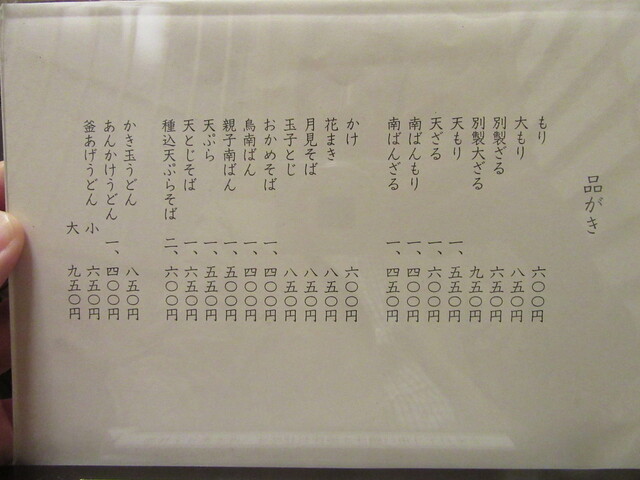 品がき
もり 六〇〇円
大もり 八五〇円
別製ざる 六五〇円
別製大ざる 九五〇円
天もり 一、五五〇円
天ざる 一、六〇〇円
南ばんもり 一、四〇〇円
南ばんざる 一、四五〇円
かけ 六〇〇円
花まき 八五〇円
月見そば 八五〇円
玉子とじ 八五〇円
おかめそば 一、四〇〇円
鳥南ばん 一、四〇〇円
親子南ばん 一、五〇〇円
天ぷら 一、五五〇円
天とじそば 一、六五〇円
種込天ぷらそば 二、六〇〇円
かき玉うどん 八五〇円
あんかけうどん 一、四〇〇円
釜あげうどん 小 六五〇円
大 九五〇円